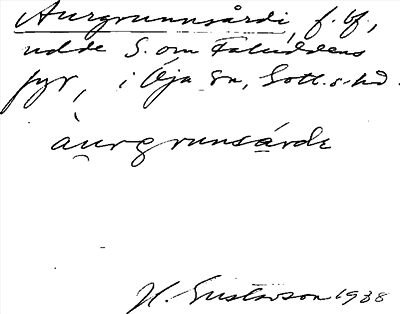 Aurgrunnsårdi, f. bf,
udde S. om Faluddens
fyr, i Öja sn, Gotl. s. hd.
àurgrunsárde
H. Gustavson 1938